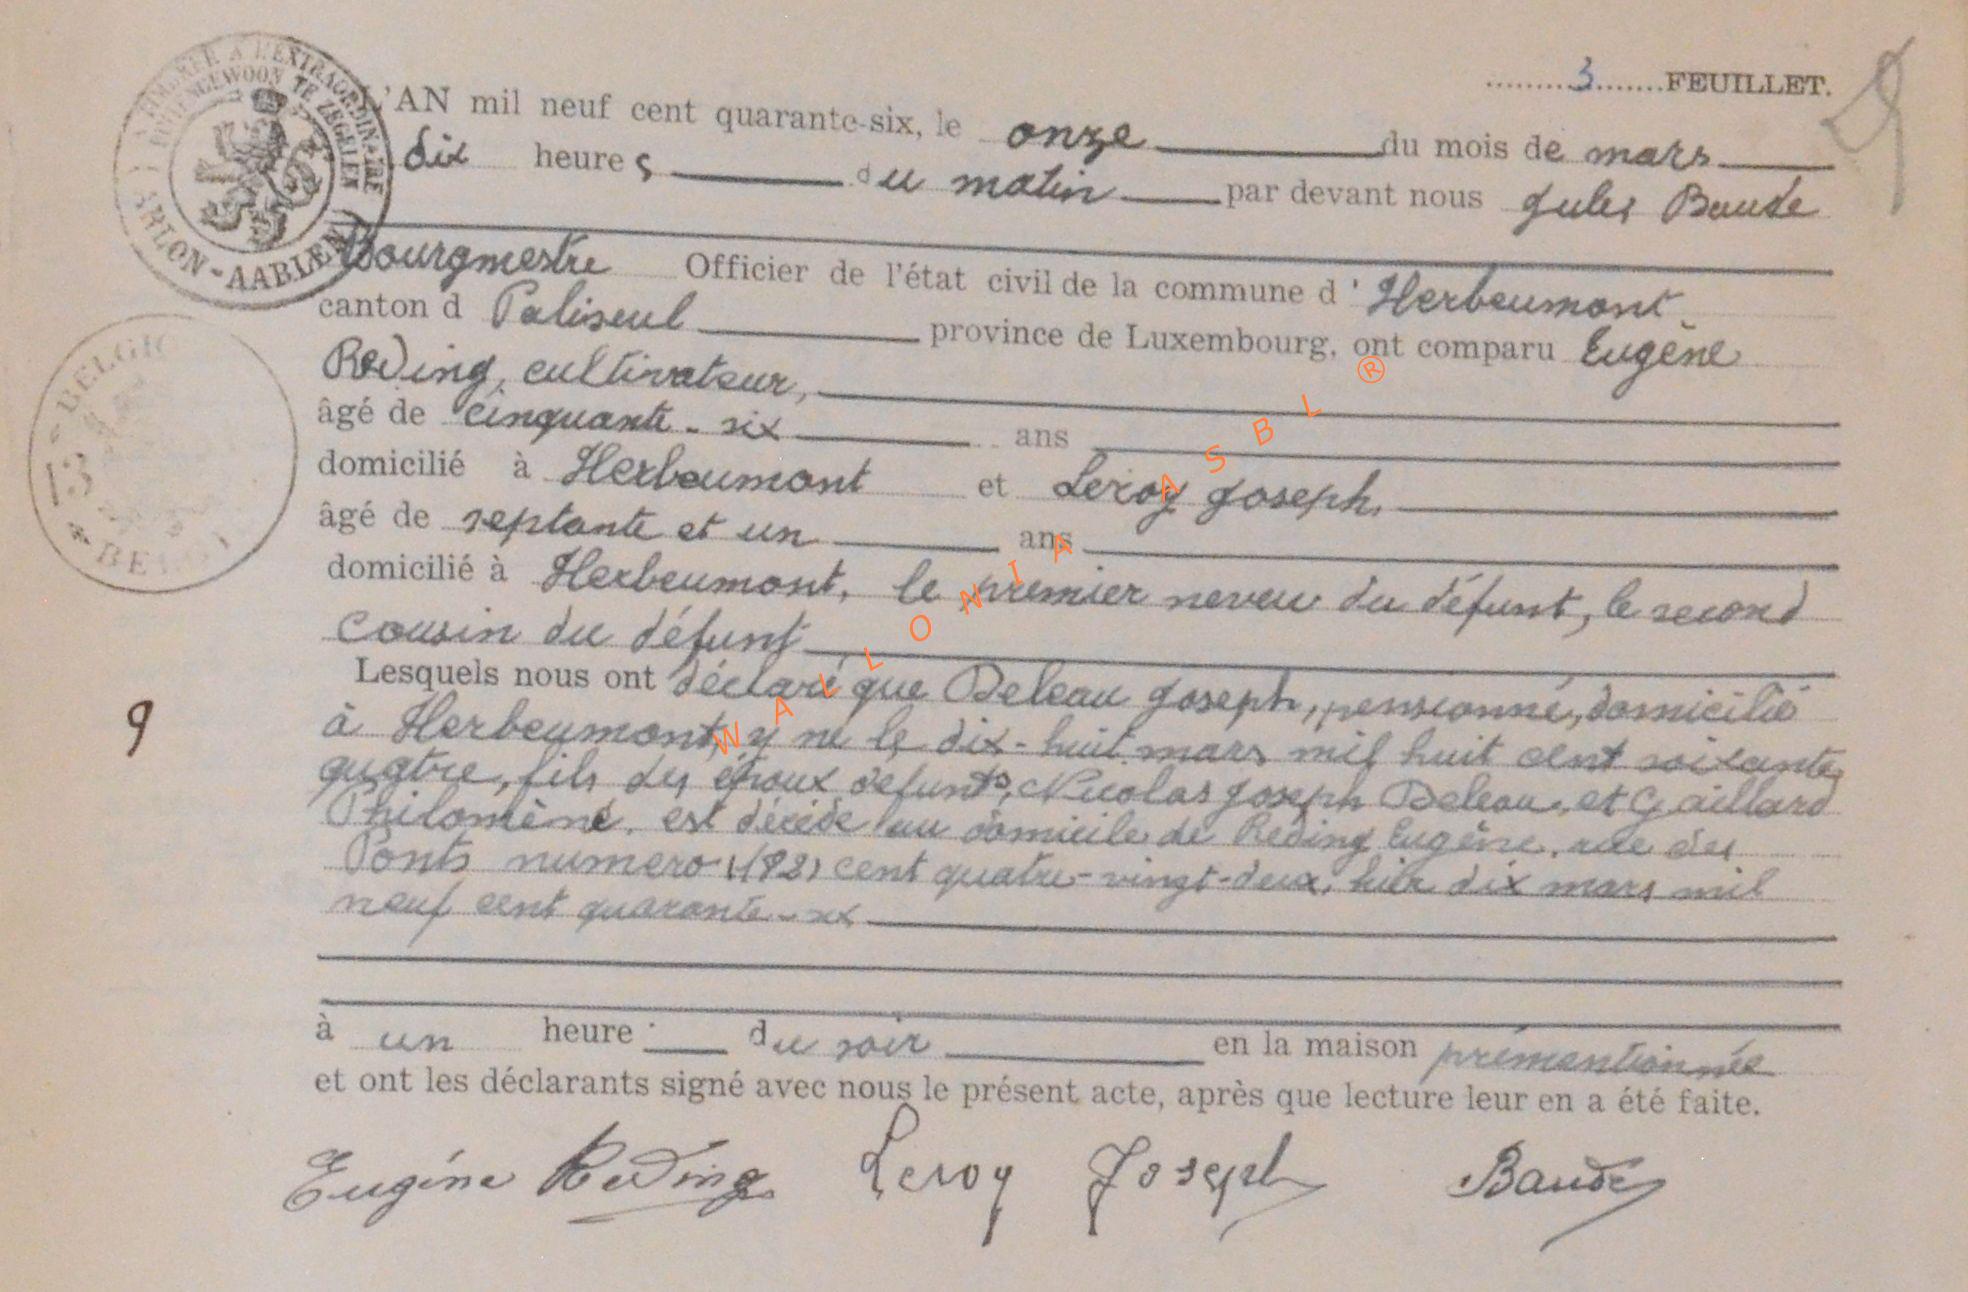 3 FEUILLET.
L'AN mil neuf cent quarante-six, le onze du mois de mars
dix heures du matin par devant nous Jules Baude
Bourgmestre Officier de l'état civil de la commune d'Herbeumont
canton d Paliseul province de Luxembourg, ont comparu Eugène
Reding, cultivateur,
âgé de cinquante-six ans
domicilié à Herbeumont et Leroy Joseph,
âgé de septante et un ans
domicilié à Herbeumont, le premier neveu du défunt, le second
cousin du défunt
Lesquels nous ont déclaré que Deleau Joseph, pensionné, domicilié
à Herbeumont, y né le dix-huit mars mil huit cent soixante
9
quatre, fils des époux défunts, Nicolas Joseph Deleau, et Gaillard
Philomène, est décédé au domicile de Reding Eugène, rue des
Ponts numero (182) cent quatre-vingt-deux, hier dix mars mil
neuf cent quarante-six
à un heure du soir en la maison prémentionnée
et ont les déclarants signé avec nous le présent acte, après que lecture leur en a été faite.
Eugéne Reding Leroy Joseph Baude
A TIMBRER A L'EXTRAORDINAIRE
BUITENGEWOON TE ZEGELEN
ARLON-AARLEN
BELGIQUE
13
BELGI
WALLONIA ASBL ®